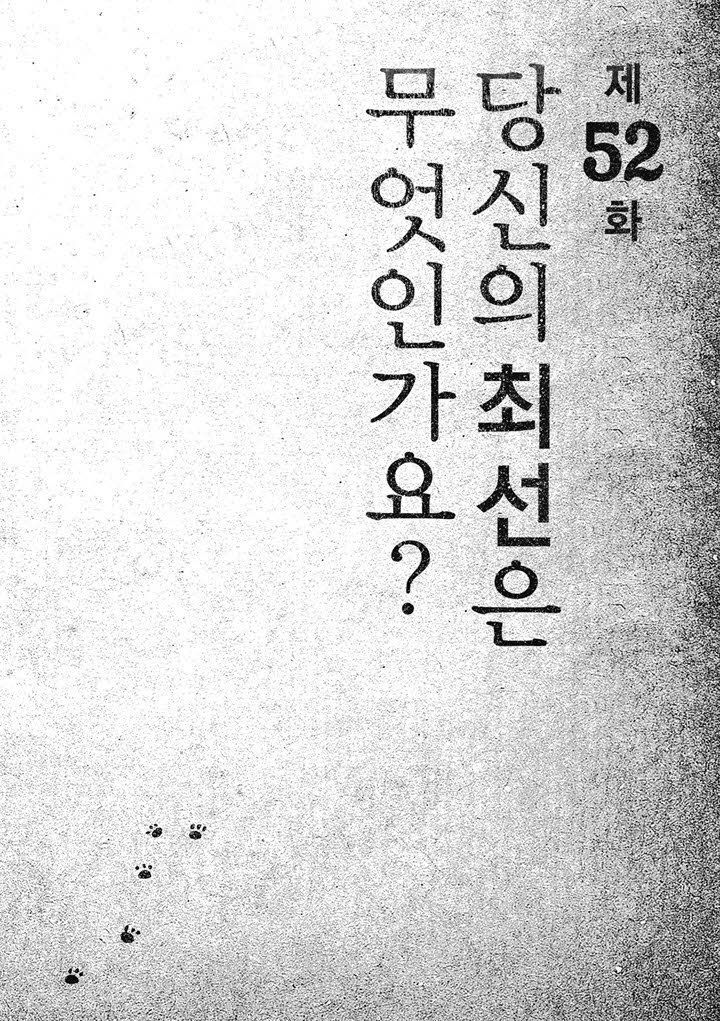 제52화
당신의 최선은
무엇인가요?